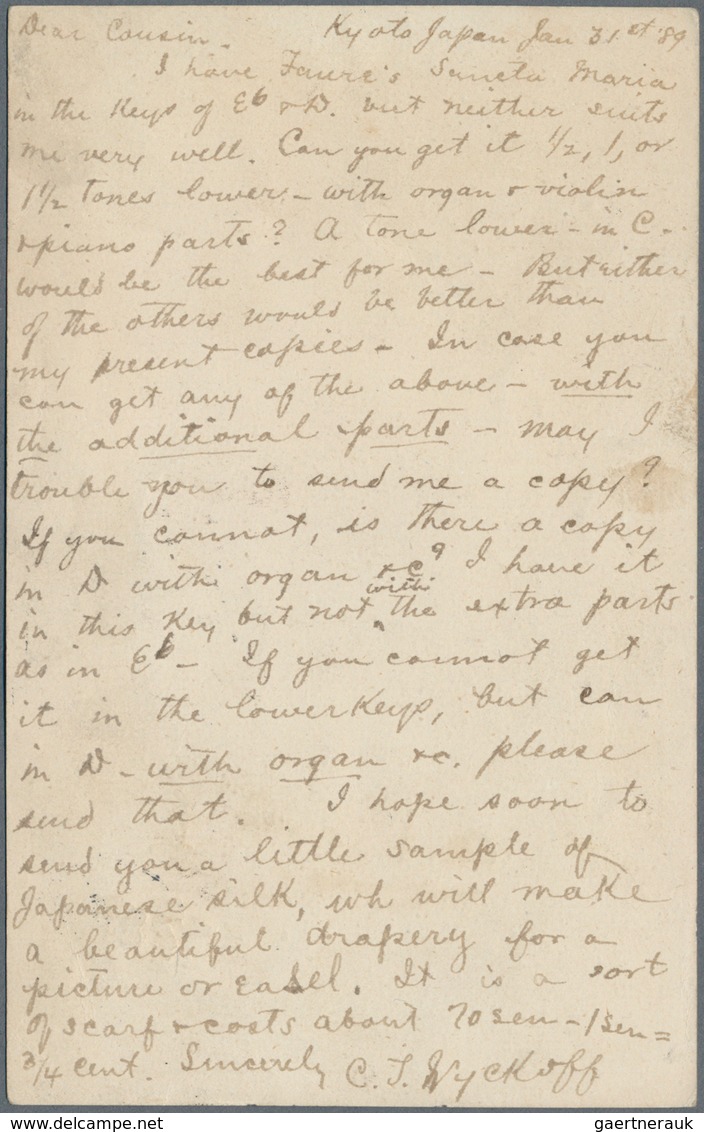 Dear Cousin. Kyoto Japan Jan 31st '89
I have Faure's Sancta Maria
in the Keys of Eb & D. but neither suits
me very well. Can you get it 1/2, 1, or
1 1/2 tones lower - with organ & violin
& piano parts? A tone lower - in C -
would be the best for me - But either
of the others would be better than
my present copies - In case you
can get any of the above - with
the additional parts - may I
trouble you to send me a copy?
If you cannot, is there a copy
in D with organ &c? I have it
in this Key but not with the extra parts
as in Eb - If you cannot get
it in the lower Keys, but can
in D - with organ &c. please
send that. I hope soon to
send you a little sample of
Japanese silk, wh will make
a beautiful drapery for a
picture or easel. It is a sort
of scarf & costs about 70 sen - 1 sen =
3/4 cent. Sincerely C. J. Wyckoff
gaertnerauk